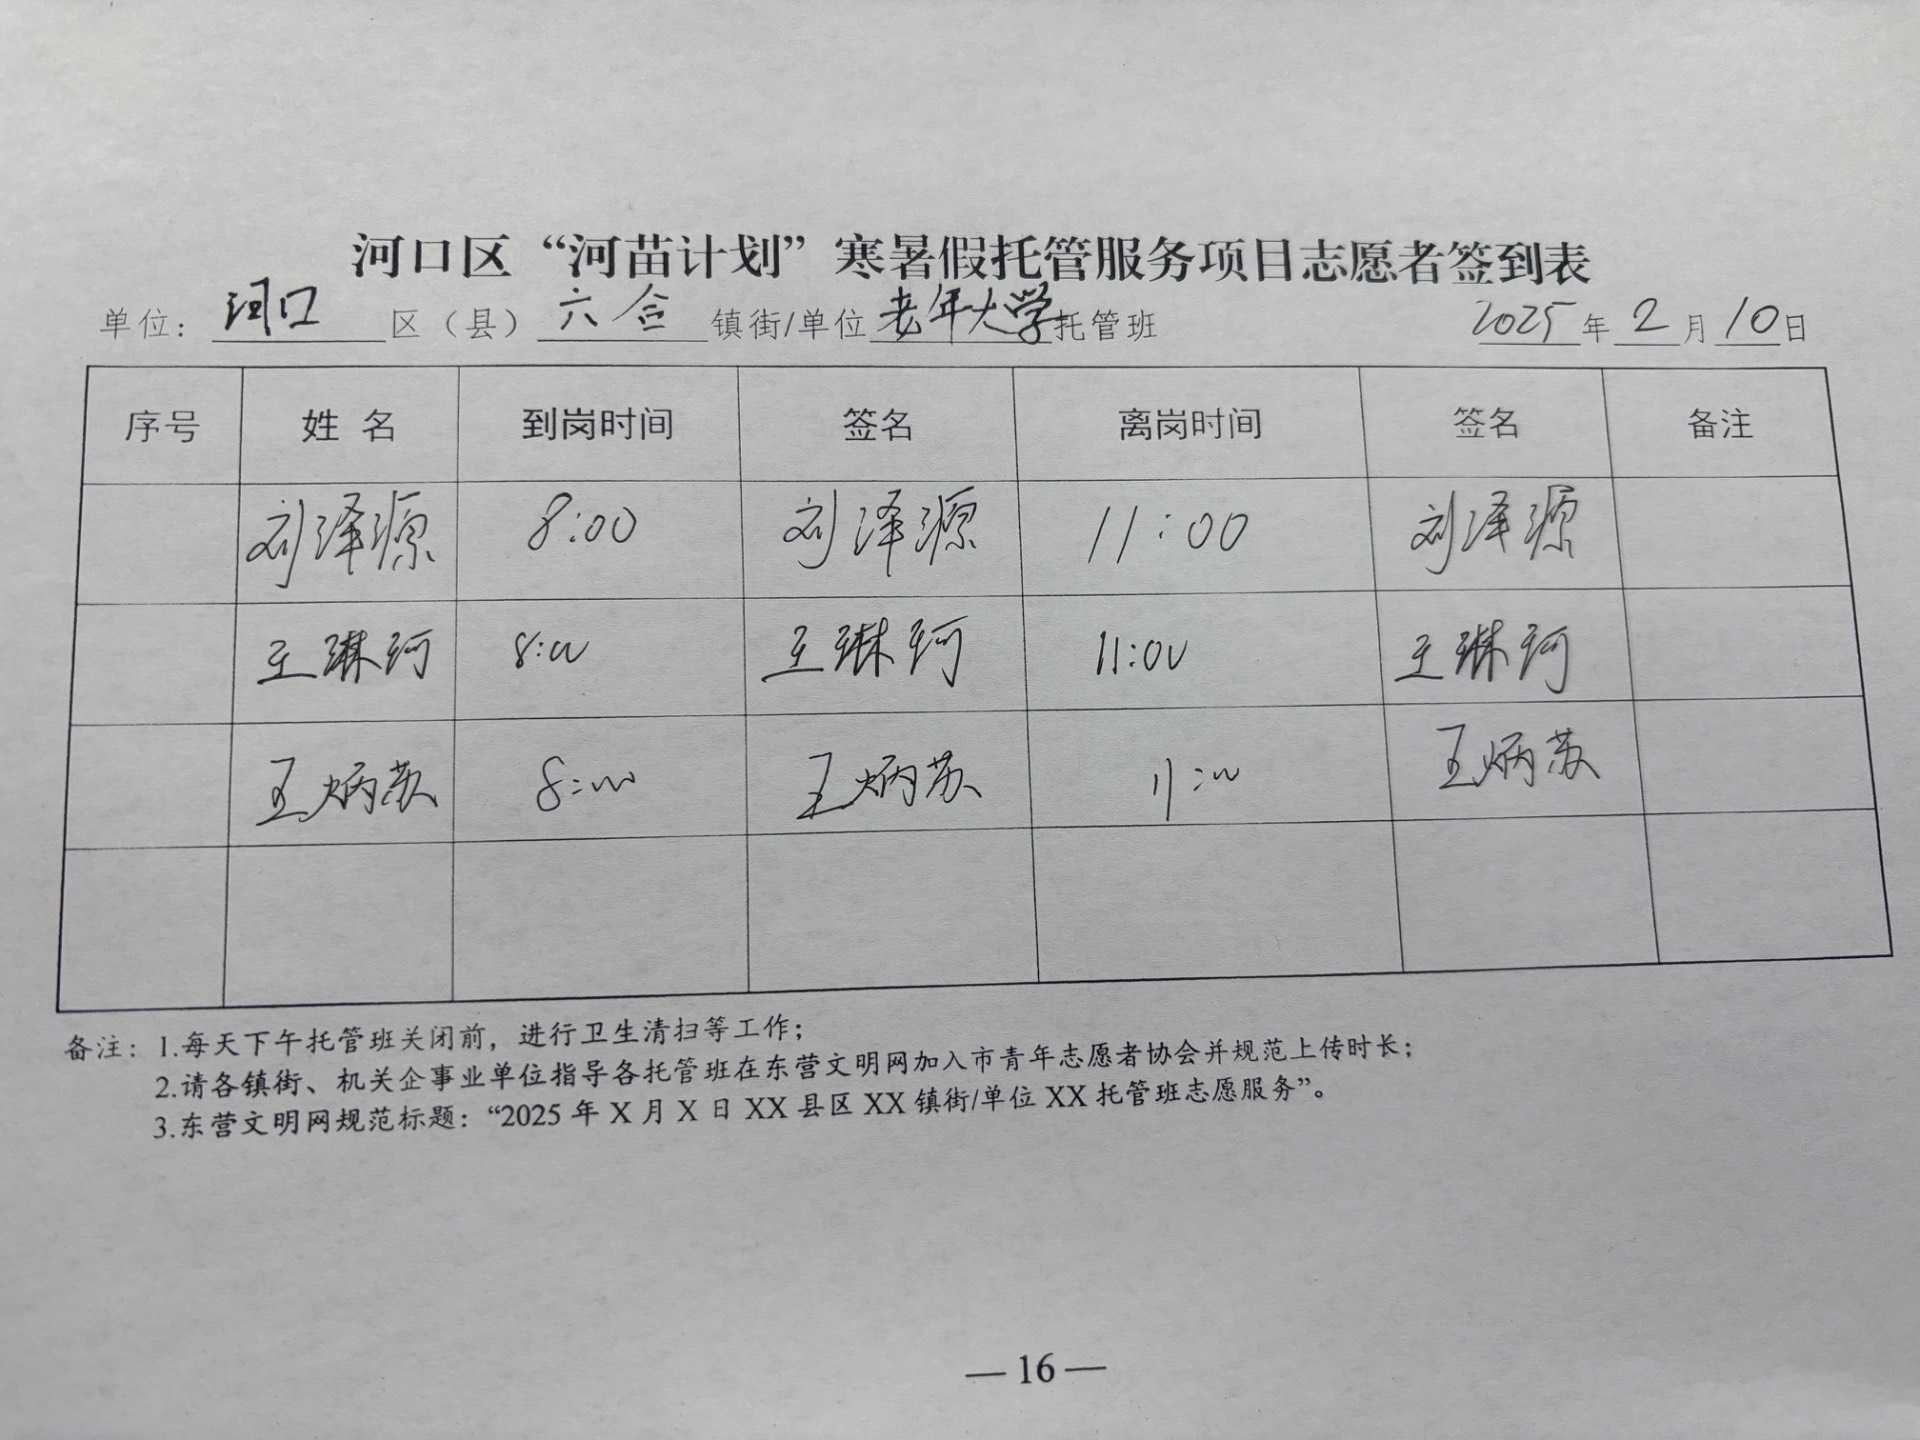 河口区“河苗计划”寒暑假托管服务项目志愿者签到表
单位：河口区（县）六合镇街/单位老年大学托管班 2025年2月10日
序号 姓名 到岗时间 签名 离岗时间 签名 备注
刘泽源 8:00 刘泽源 11:00 刘泽源
王琳珂 8:00 王琳珂 11:00 王琳珂
王炳苏 8:00 王炳苏 11:00 王炳苏
备注：1.每天下午托管班关闭前，进行卫生清扫等工作；
2.请各镇街、机关企事业单位指导各托管班在东营文明网加入市青年志愿者协会并规范上传时长；
3.东营文明网规范标题：“2025年X月X日XX县区XX镇街/单位XX托管班志愿服务”。
—16—